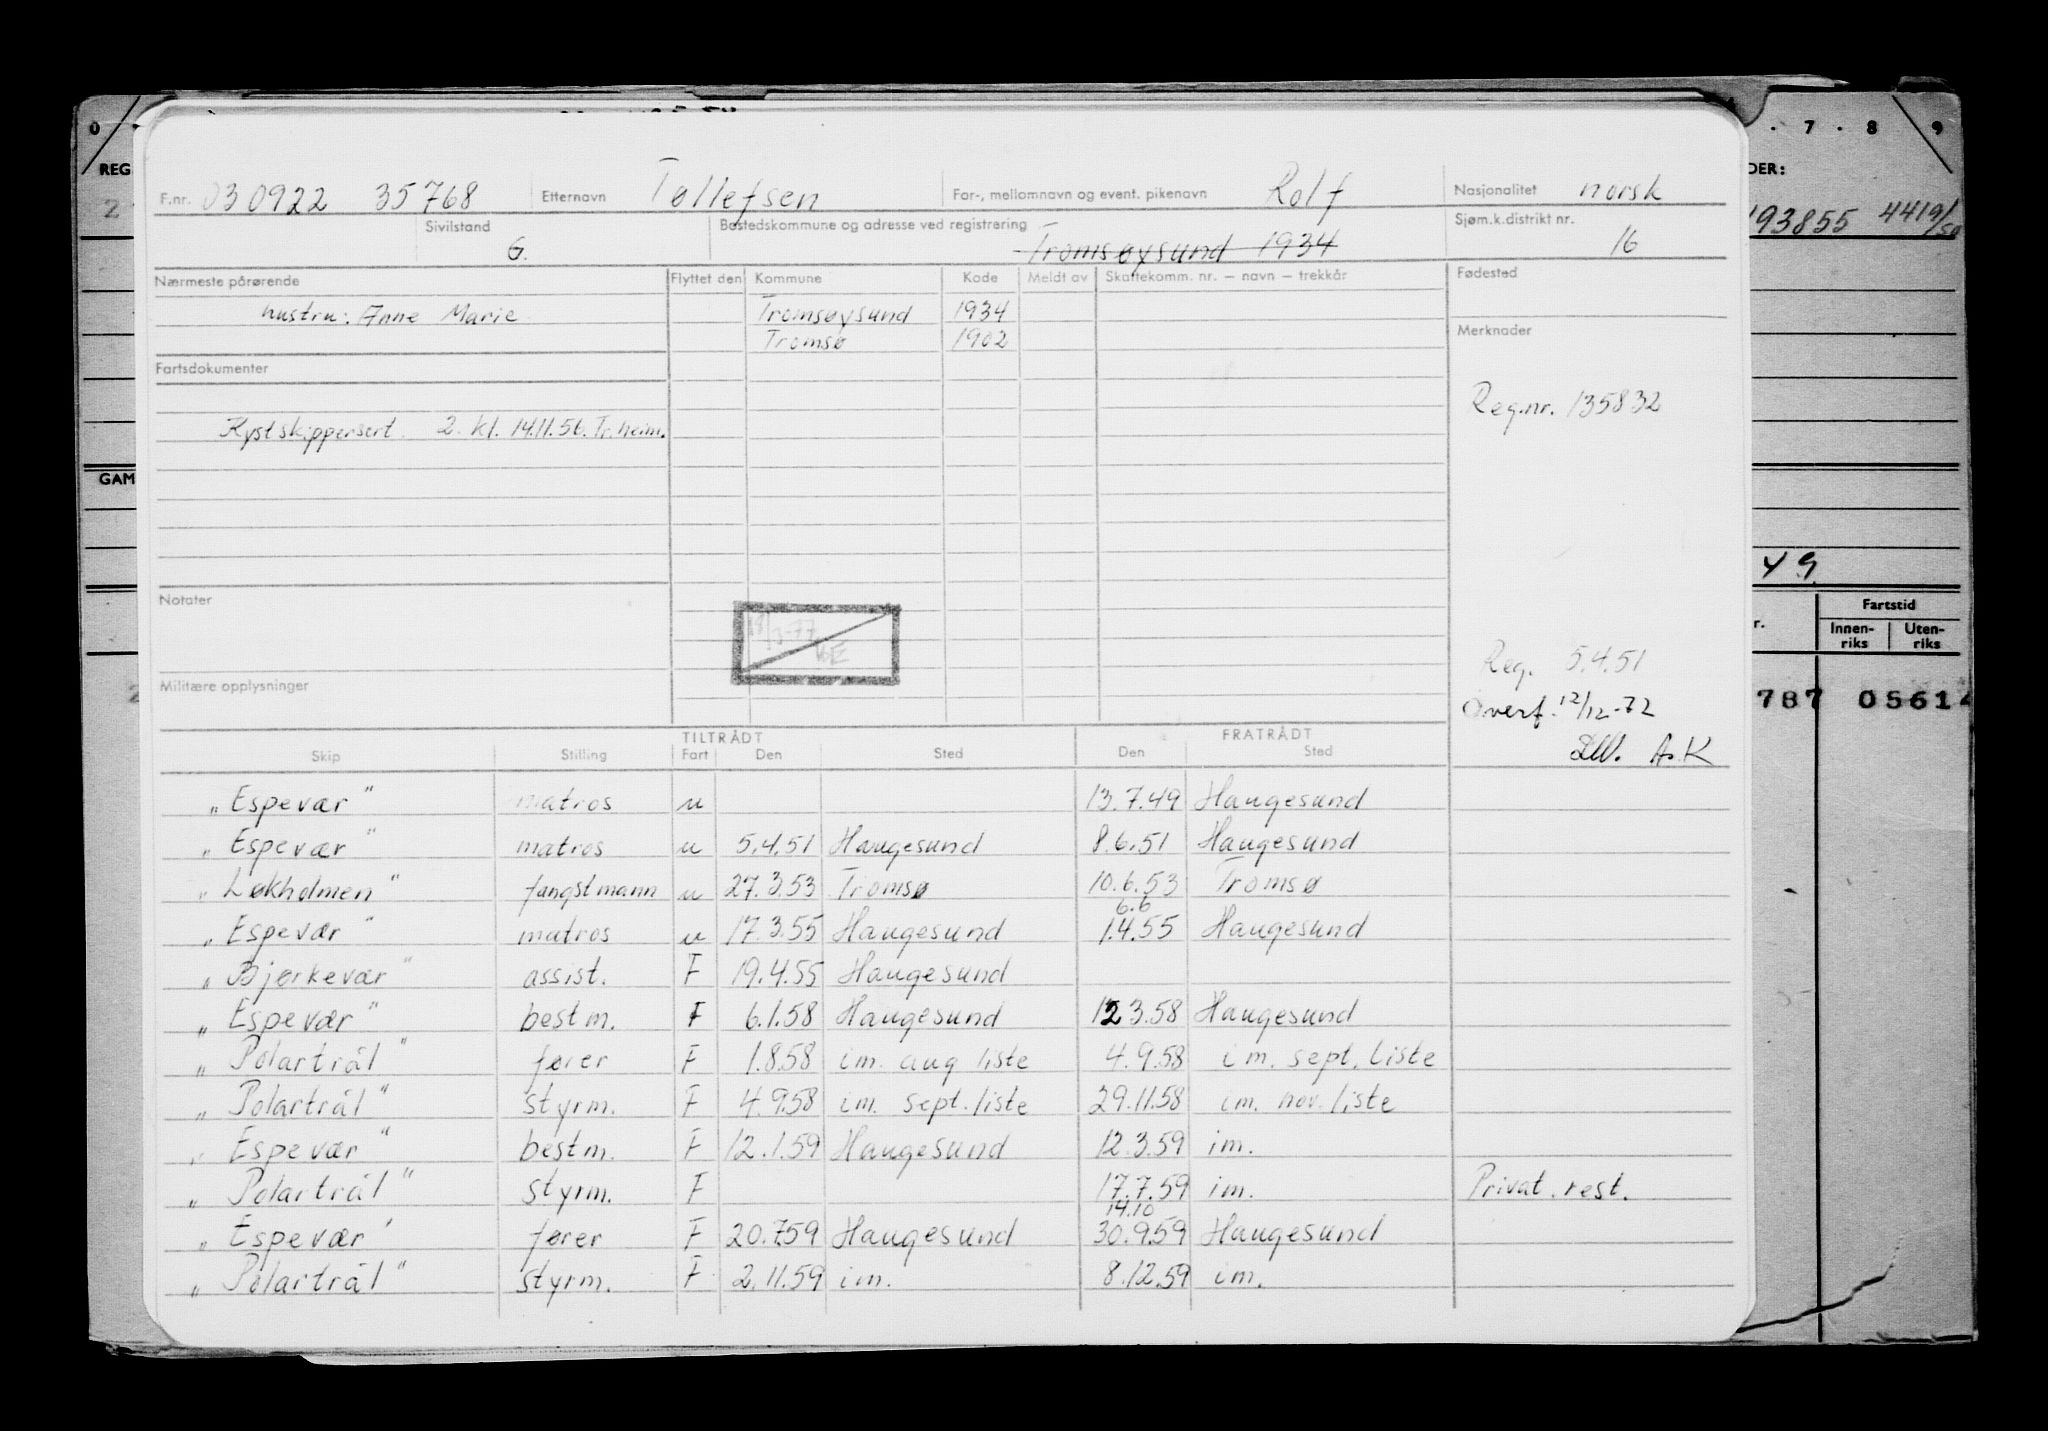 0 7 8 9
REG DER:
F.nr. 030922 35768 Etternavn Tollefsen For-, mellomnavn og event. pikenavn Rolf Nasjonalitet norsk
193855 4419/50
Sivilstand G. Bostedskommune og adresse ved registrering Tromsøysund 1934 Sjøm.k.distrikt nr. 16
Nærmeste pårørende Flyttet den Kommune Kode Meldt av Skattekomm. nr. – navn – trekkår Fødested
hustru: Anne Marie Tromsøysund 1934
Tromsø 1902 Merknader
Fartsdokumenter
Reg.nr. 135832
Kystskippersert. 2. kl. 14.11.56. Tr.heim.
GAM
49
Notater
Fartstid
r. Innen-riks Uten-riks
18/3-77
Reg. 5.4.51
Militære opplysninger
787 05614
Overf. 12/12-72
A.K
TILTRÅDT FRATRÅDT
Skip Stilling Fart Den Sted Den Sted
"Espevær" matros u 13.7.49 Haugesund
"Espevær" matros u 5.4.51 Haugesund 8.6.51 Haugesund
"Løkholmen" fangstmann u 27.3.53 Tromsø 10.6.53 Tromsø
6.6
"Espevær" matros u 17.3.55 Haugesund 1.4.55 Haugesund
"Bjørkevær" assist. F 19.4.55 Haugesund
"Espevær" bestm. F 6.1.58 Haugesund 12.3.58 Haugesund
"Polartrål" fører F 1.8.58 im. aug liste 4.9.58 im. sept. liste
"Polartrål" styrm. F 4.9.58 im. sept. liste 29.11.58 im. nov. liste
"Espevær" bestm. F 12.1.59 Haugesund 12.3.59 im.
"Polartrål" styrm. F 17.7.59 im. Privat. rest.
14.10
"Espevær" fører F 20.7.59 Haugesund 30.9.59 Haugesund
"Polartrål" styrm. F 2.11.59 im. 8.12.59 im.